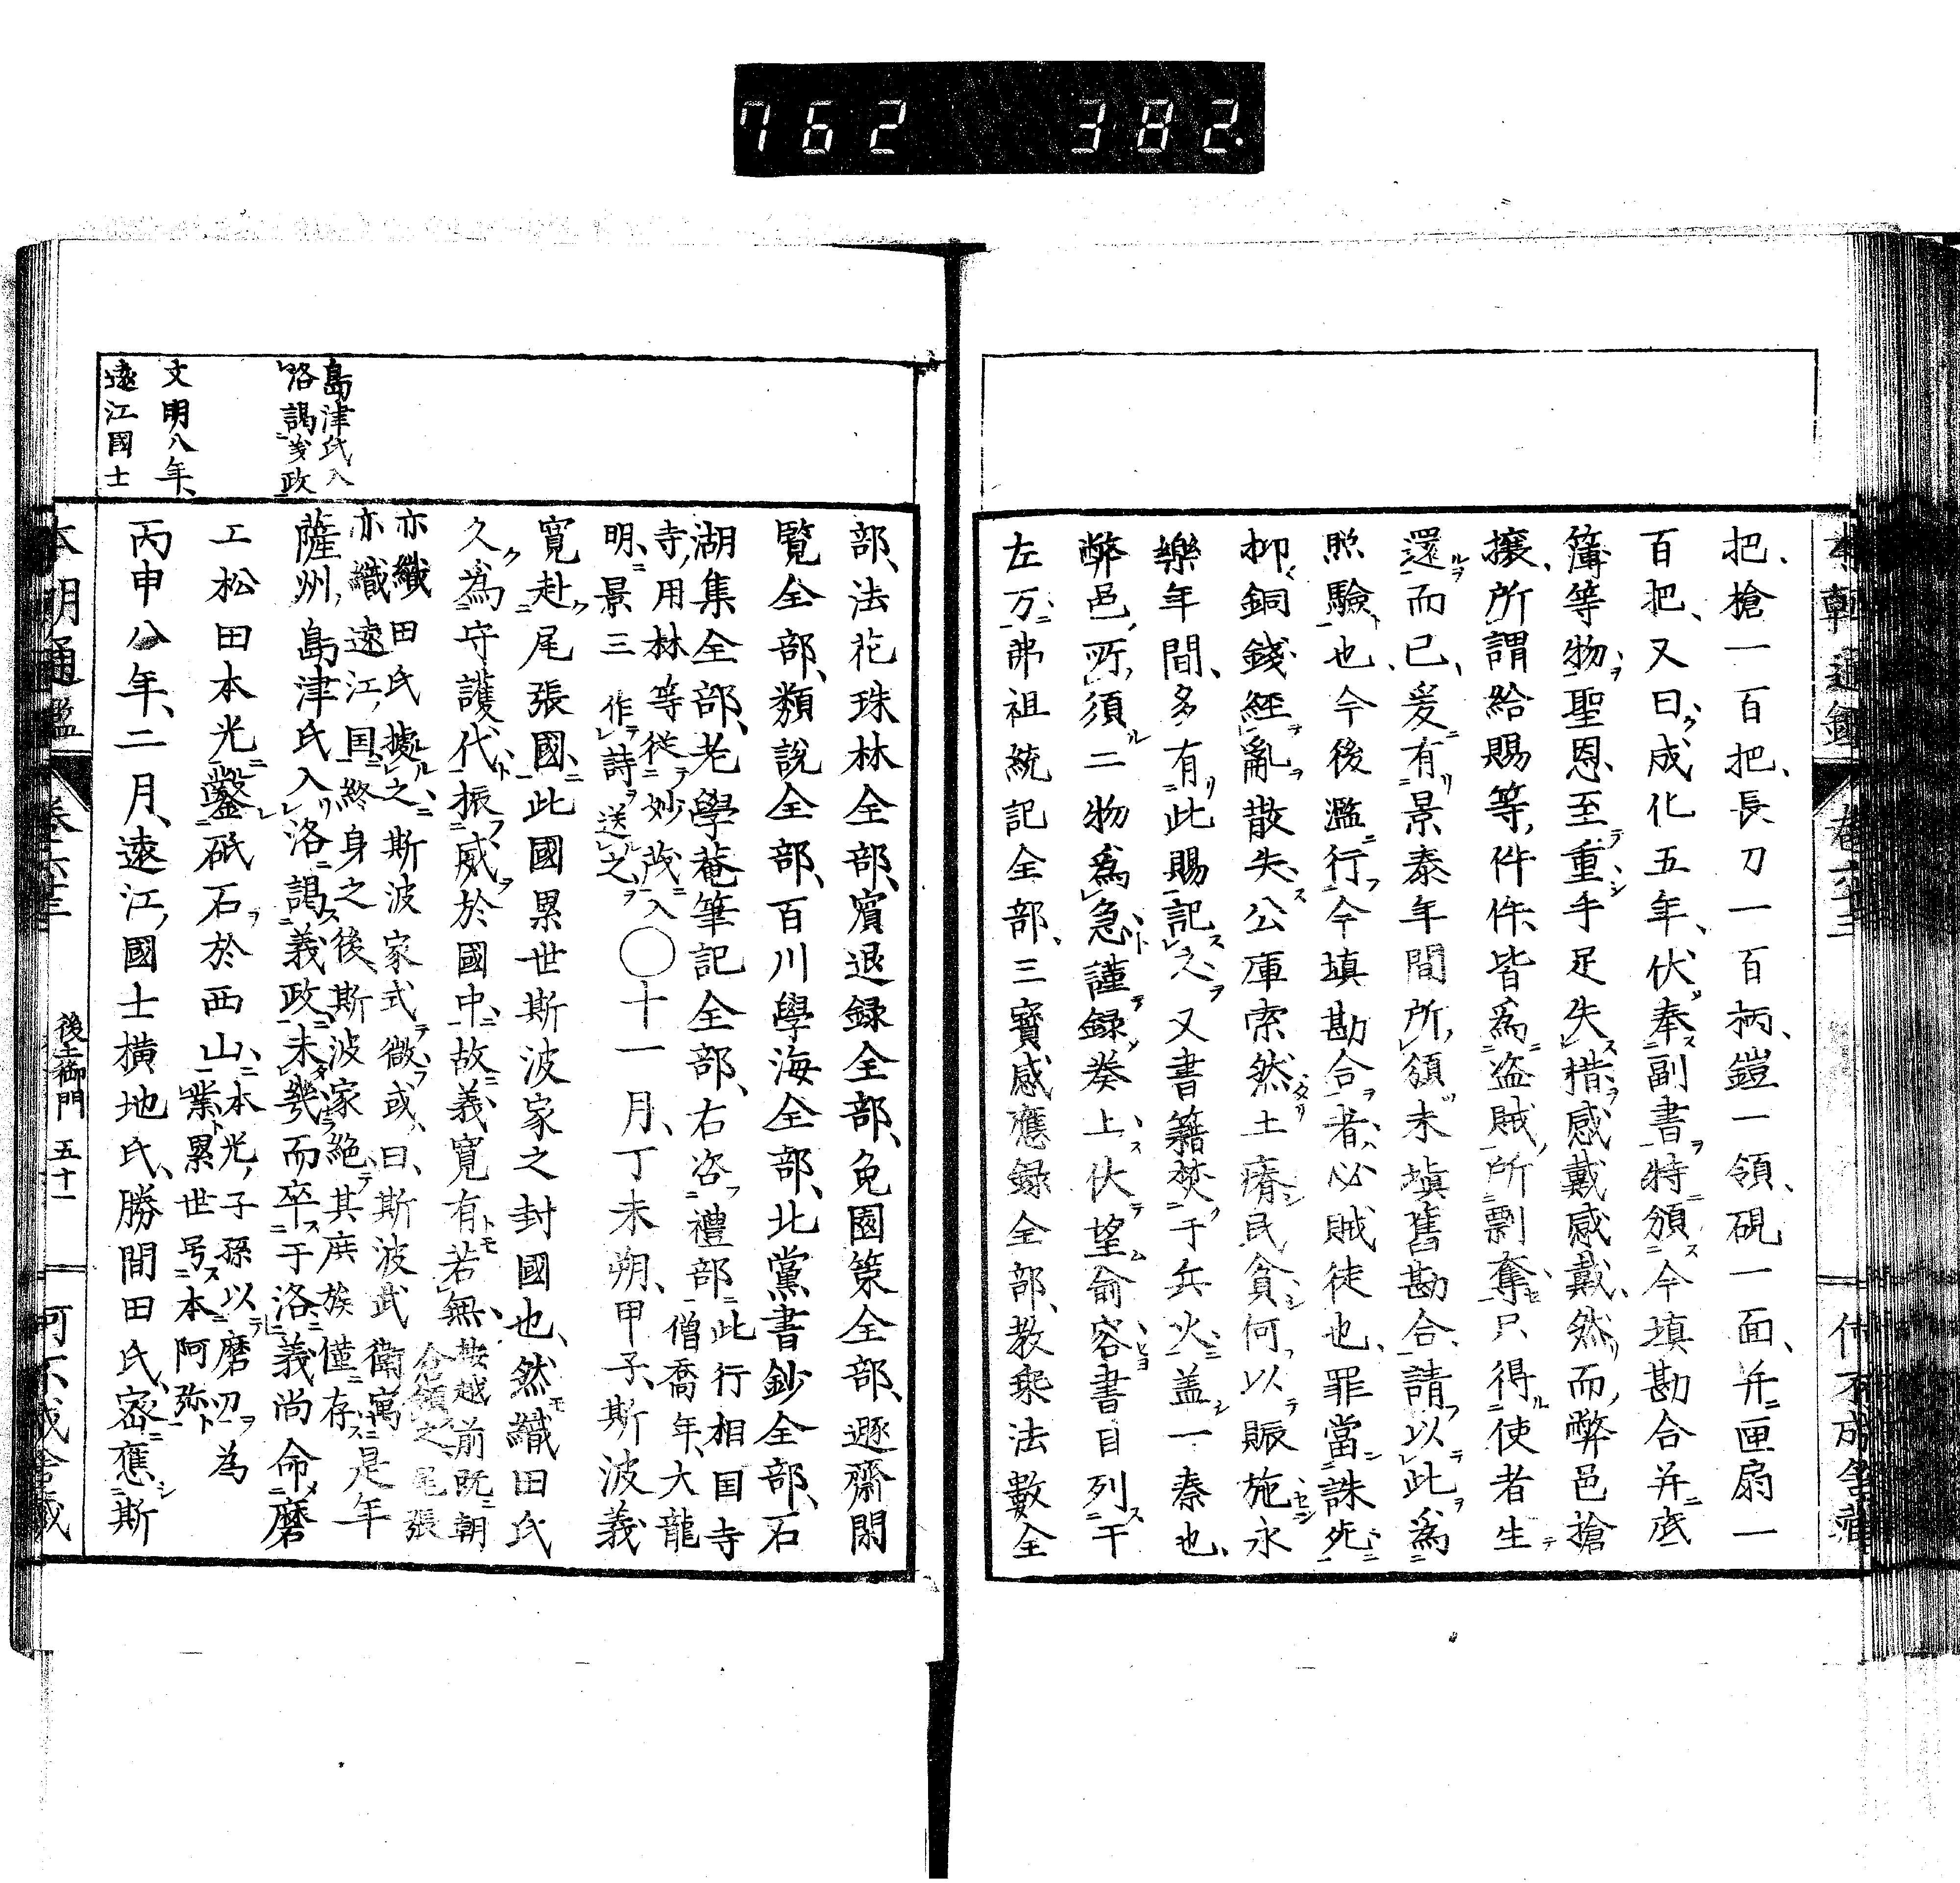 762 382.
把槍一百把長刀一百柄鎧一領硯一面并匣扇一
百把又曰成化五年伏奉副書特頒今填勘合并底
簿等物聖恩至重手足失措感戴感戴然而弊邑搶
攘所謂給賜等件件皆為盜賊所剽奪只得使者生
還而已爰有景泰年間所頒未塡舊勘合請以此為
照驗也今後濫行今填勘合者必賊徒也罪當誅死
抑銅錢經亂散失公庫索然土瘠民貧何以賑施永
樂年間多有此賜記之又書籍焚于兵火盖一秦也
弊邑所須二物為急謹録奏上伏望俞容書目列干
左方弗祖統記全部三寶感應録全部教乘法數全
部法花珠林全部賓退録全部兔園策全部遯齋閑
覽全部類說全部百川學海全部北黨書鈔全部石
湖集全部老學菴筆記全部右咨禮部此行相国寺僧喬年大龍
寺用林等従妙茂入
明景三作詩送之〇十一月丁未朔甲子斯波義
寛赴尾張國此國累世斯波家之封國也然織田氏
久為守護代振威於國中故義寬有若無按越前既朝倉領之尾張
亦織田氏據之斯波家式微或曰斯波武衛寓
亦織遠江国終身之後斯波家絶其庶族僅存是年
薩州島津氏入洛謁義政未幾而卒于洛義尚命磨
工松田本光鑿砥石於西山本光子孫以磨刀為
業累世号本阿弥
丙申八年二月遠江國士横地氏勝間田氏密應斯
島津氏入
洛謁義政
文明八年
遠江國士
本朝通鑑
卷六十三
後土御門 五十一